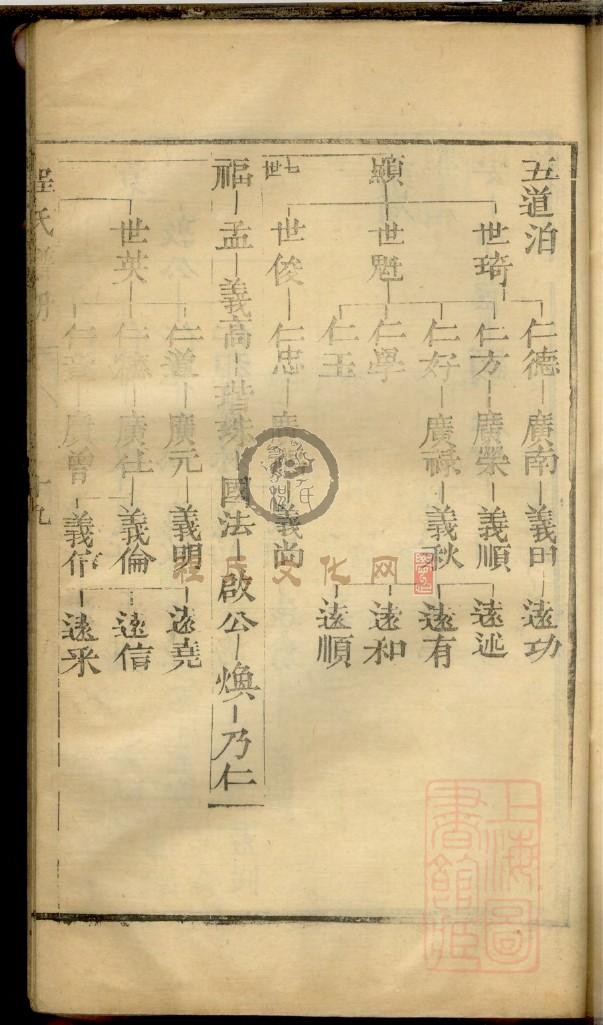 五道泊
世琦 仁德 廣南 義田 遠功
仁方 廣榮 義順 遠述
仁好 廣祿 義秋 遠有
顯 世魁 仁學 遠和
仁玉 遠順
七世
世俊 仁忠 廣 義尚
福 孟 義高 瑨 珠 國法 啟公 煥 乃仁
仁道 廣元 義明 遠堯
世英 仁德 廣仕 義倫 遠信
廣曾 義 遠采
程氏 十九
程氏文化网
上海圖書館